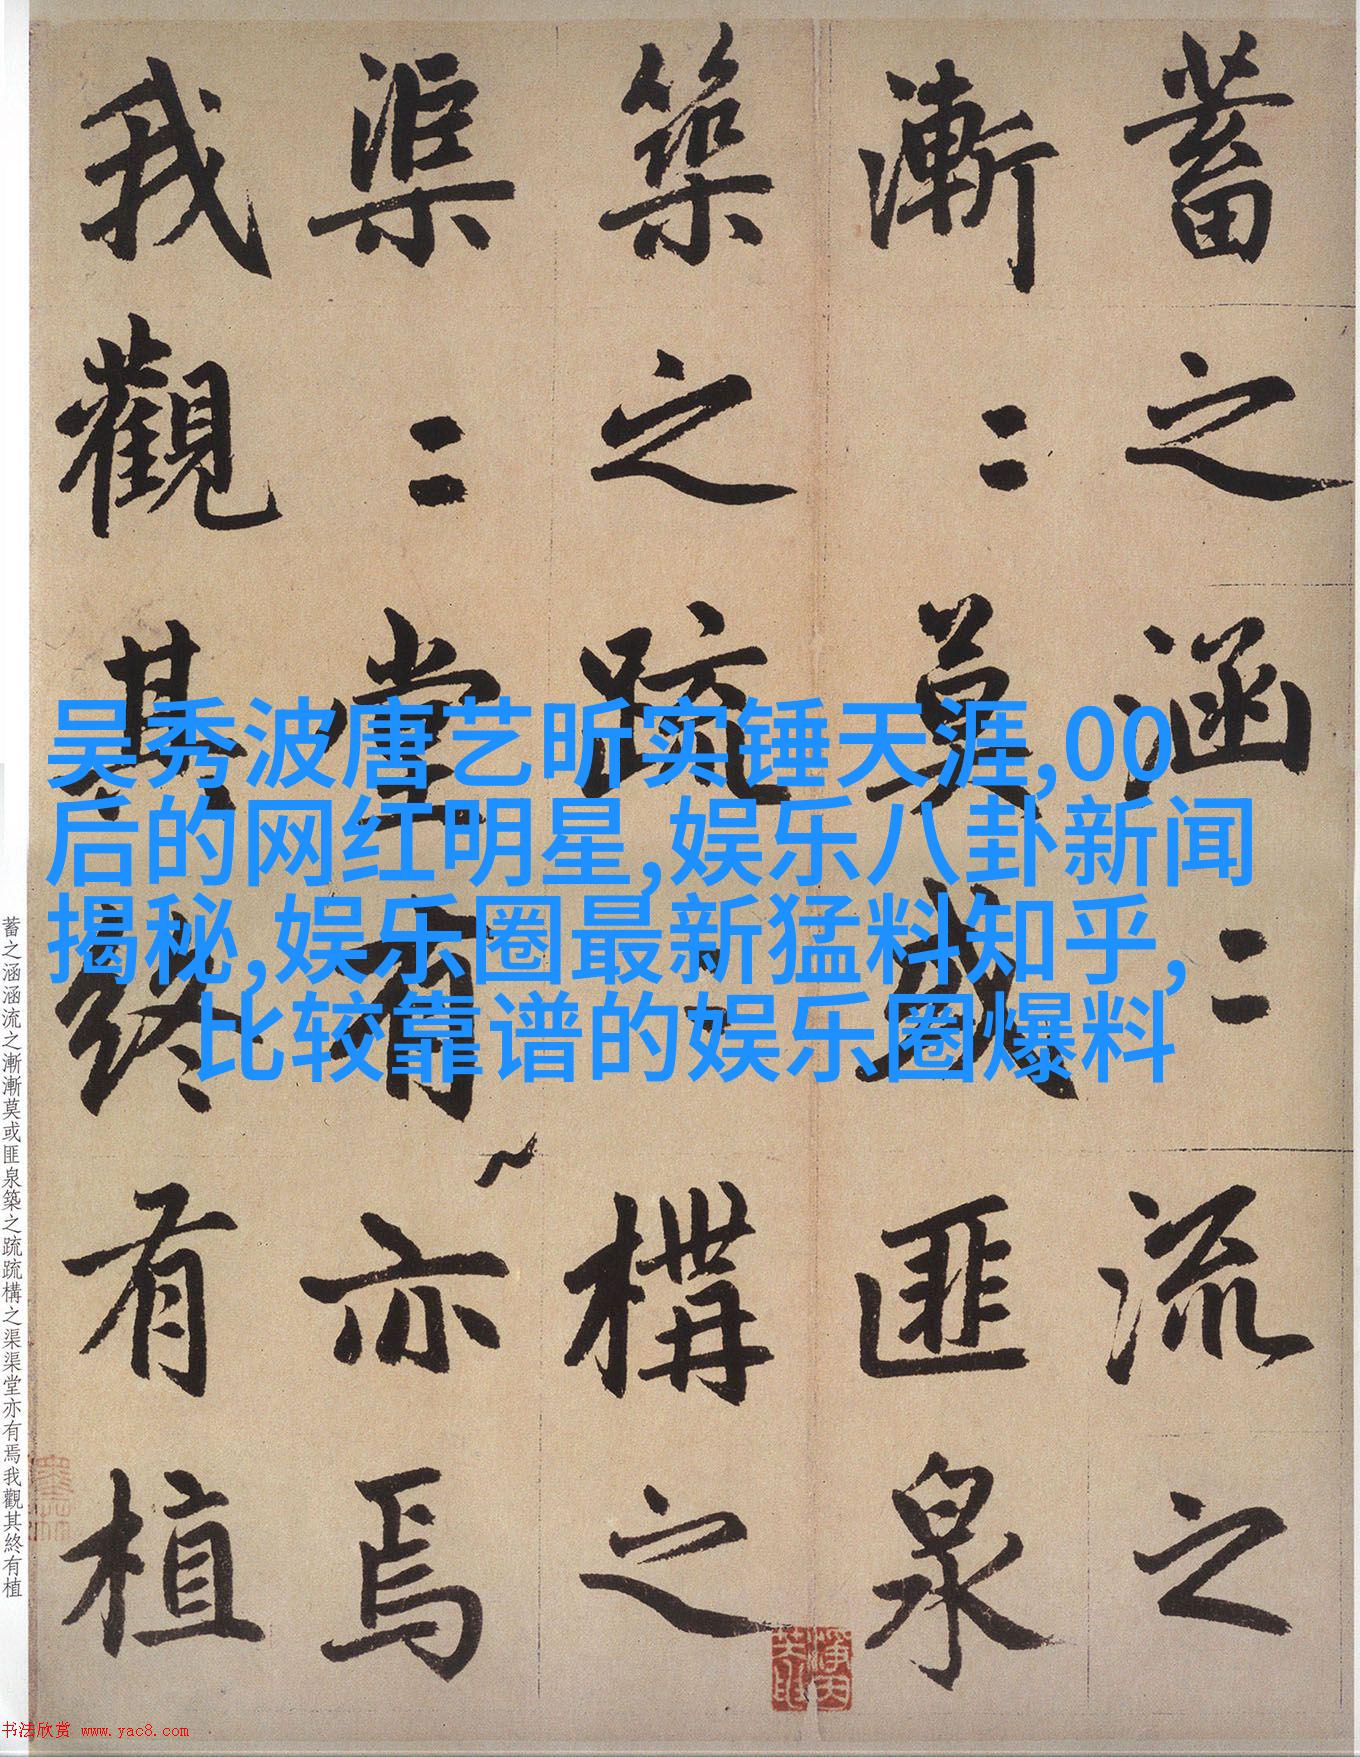 蓄之涵二流之
漸二莫或匪泉
築之疏、構之
渠二堂有亦焉
我觀其終有植
吴秀波唐艺昕实锤天涯,00
后的网红明星,娱乐八卦新闻
揭秘,娱乐圈最新猛料知乎,
比较靠谱的娱乐圈爆料
蓄之涵涵流之漸漸莫或匪泉築之疏疏構之渠渠堂亦有焉我觀其終有植
书法欣赏 www.yac8.com